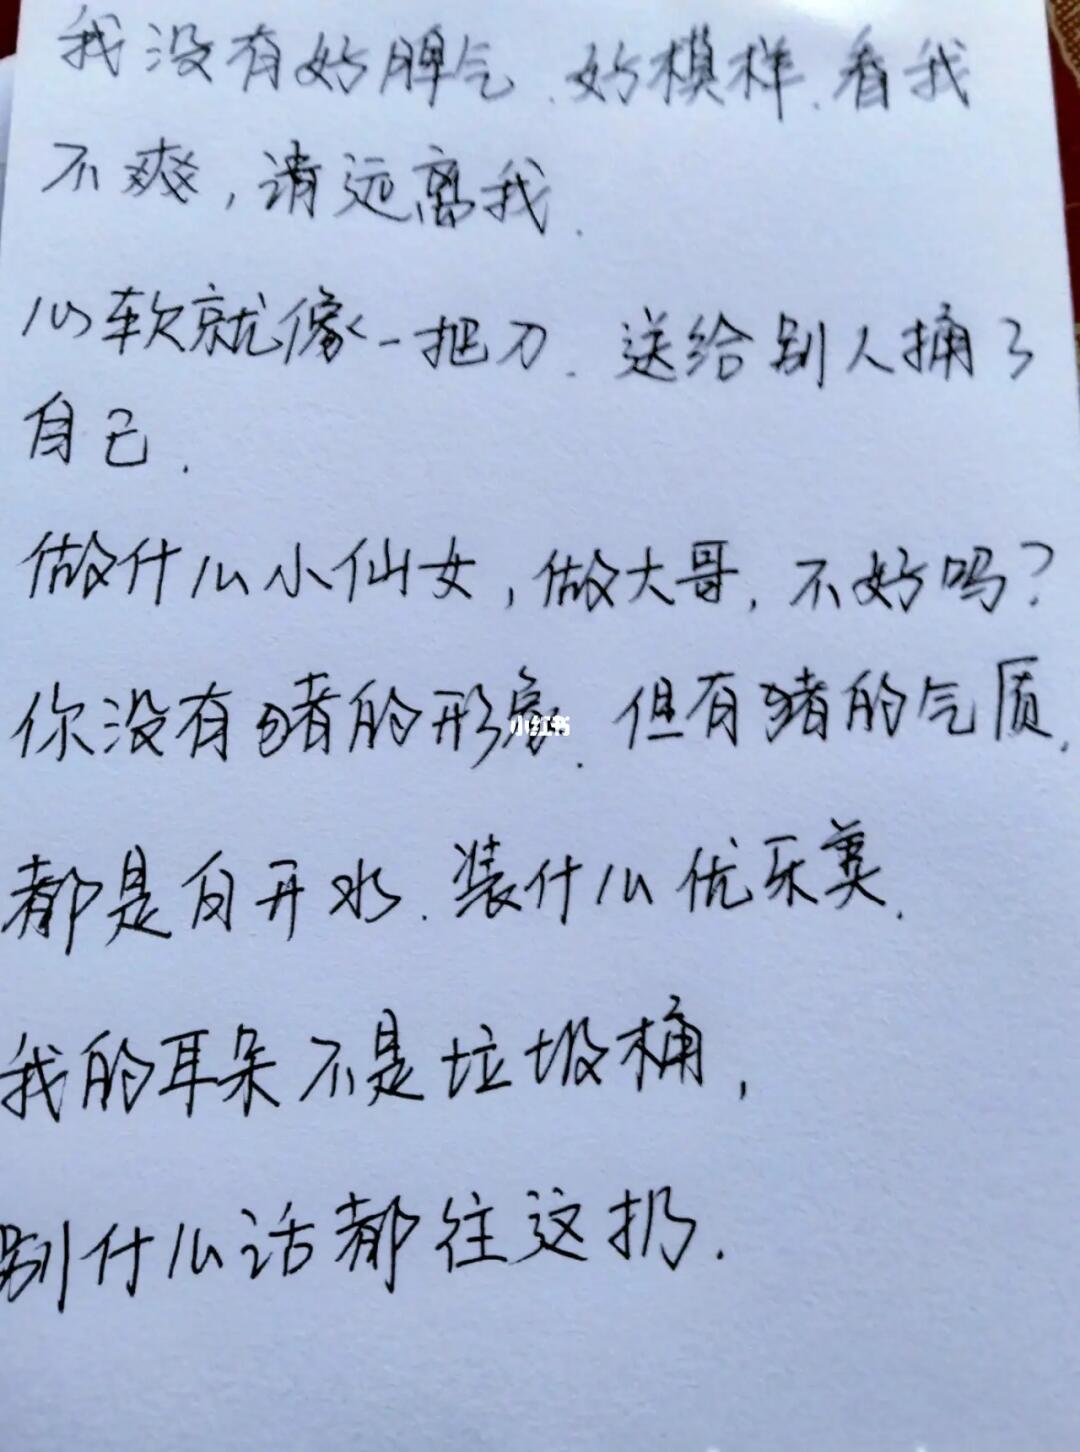 我没有好脾气.好模样.看我
不爽,请远离我.
心软就像一把刀.送给别人捅了
自己.
做什么小仙女,做大哥,不好吗?
你没有猪的形象.但有猪的气质.
小红书
都是白开水.装什么优乐美.
我的耳朵不是垃圾桶,
别什么话都往这扔.